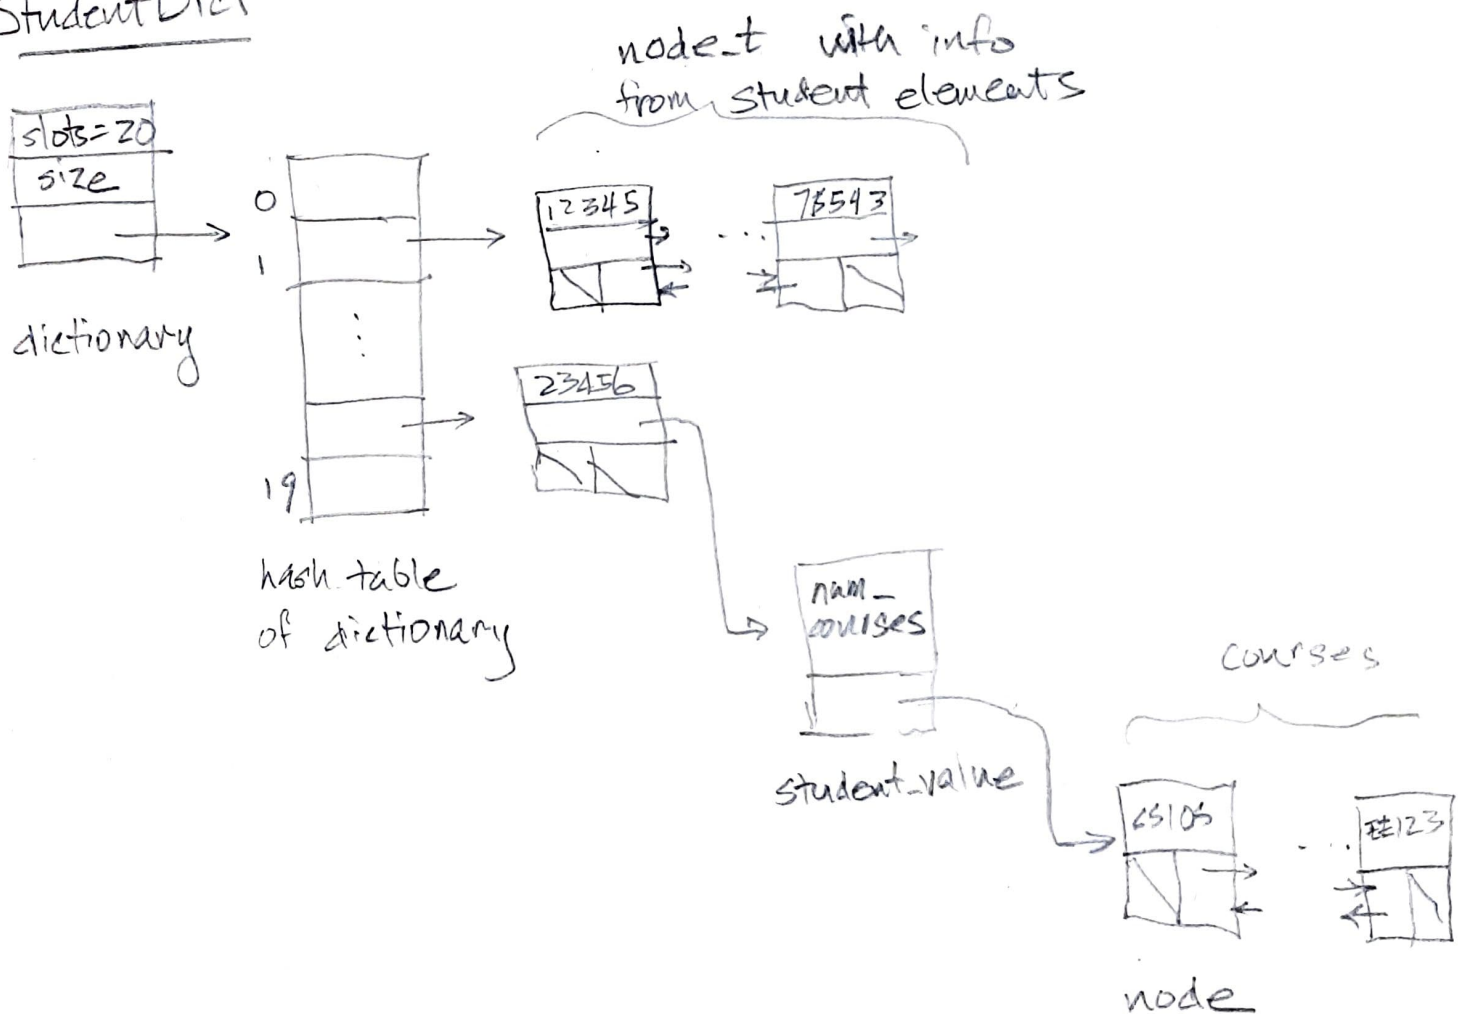 StudentDict
node_t with info
from student elements
slots=20
size
dictionary
0
1
19
hash table
of dictionary
12345
...
23456
num_
courses
student_value
courses
CS105
...
EE123
node